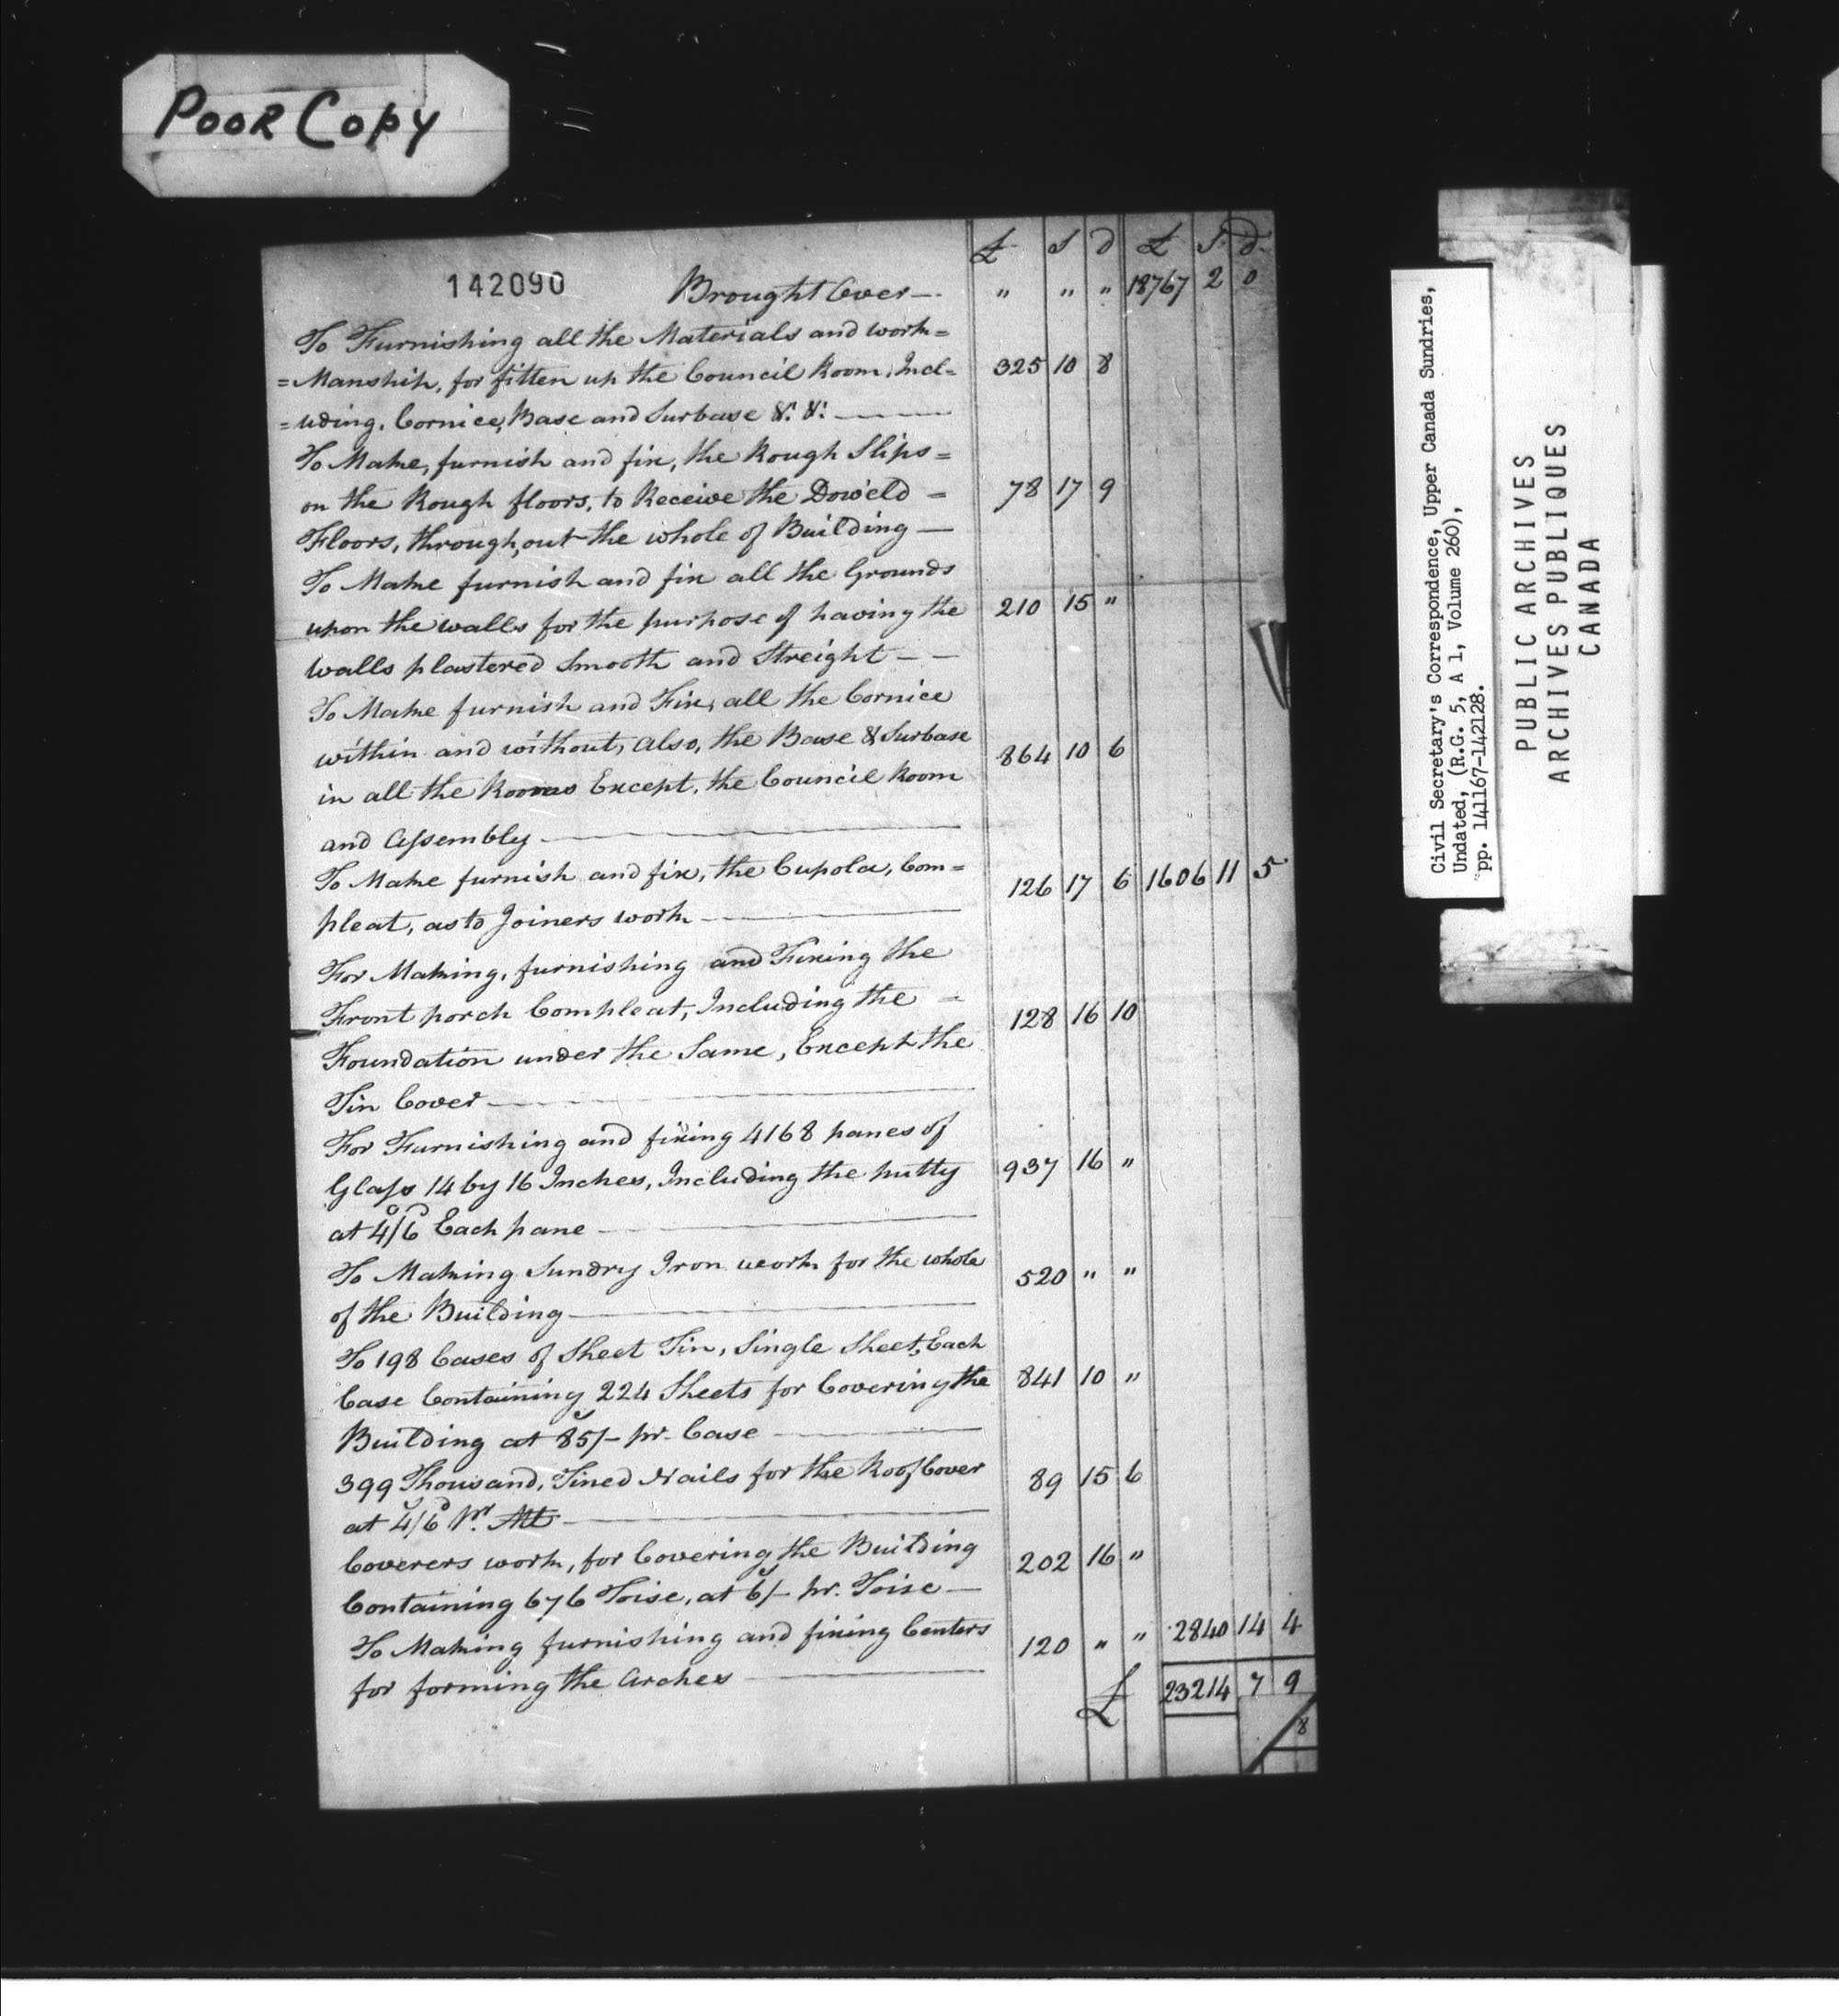 POOR COPY
£ S d £ S d
142090 Brought Over — " " " 18767 2 0
To Furnishing all the Materials and work=
=Manship, for fitten up the Council Room, Incl= 325 10 8
=uding, Cornice, Base and Surbase &c. &c. —
To Make, furnish and fix, the Rough Slips=
on the Rough floors, to Receive the Dowel'd = 78 17 9
Floors, through,out the whole of Building —
To Make furnish and fix all the Grounds
upon the walls for the purpose of having the 210 15 "
walls plastered Smooth and Streight — —
To Make furnish and Fix, all the Cornice
within and without, also, the Base & Surbase 864 10 6
in all the Rooms Except, the Council Room
and Assembly —
To Make furnish and fix, the Cupola, Com= 126 17 6 1606 11 5
pleat, as to Joiners work —
For Making, furnishing and Fixing the
Front porch Compleat, Including the = 128 16 10
Foundation under the Same, Except the
Tin Cover —
For Furnishing and fixing 4168 panes of
Glass 14 by 16 Inches, Including the putty 937 16 "
at 4/6 Each pane —
To Making Sundry Iron work for the whole 520 " "
of the Building —
To 198 Cases of Sheet Tin, Single Sheet, Each
Case Containing 224 Sheets for Covering the 841 10 "
Building at 85/- pr. Case —
399 Thousand, Tined Nails for the Roof Cover 89 15 6
at 4/6 pr. Mt —
Coverers work, for Covering the Building 202 16 "
Containing 676 Toise, at 6/- pr. Toise —
To Making furnishing and fixing Centers 120 " " 2840 14 4
for forming the Arches —
£ 23214 7 9
8
Civil Secretary's Correspondence, Upper Canada Sundries,
Undated, (R.G. 5, A 1, Volume 260),
pp. 141167-142128.
PUBLIC ARCHIVES
ARCHIVES PUBLIQUES
CANADA